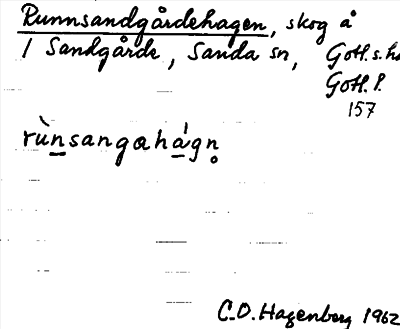 Runnsandgårdehagen, skog å
1 Sandgårde, Sanda sn, Gotl. s. hd
Gotl. l.
157
rùnsangɑhágn̥
C.O. Hagenberg 1962